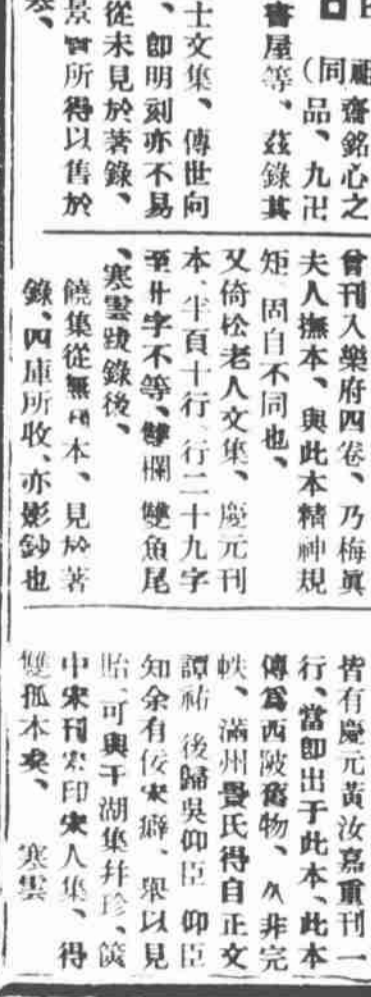 齋銘心之
(同品、九卍
書屋等、茲錄其
士文集、傳世向
、即明刻亦不易
從未見於著錄、
景賢所得以售於
曾刊入樂府四卷、乃梅眞
夫人撫本、與此本精神規
矩、固自不同也、
又倚松老人文集、慶元刊
本、半頁十行、行二十九字
至廿字不等、雙欄 雙魚尾
、寒雲跋錄後、
饒集從無刊本、見於著
錄、四庫所收、亦影鈔也
皆有慶元黃汝嘉重刊一
行、當即出于此本、此本
傳爲西陂舊物、久非完
帙、滿州氏得自正文
譚祐 後歸吳仰臣 仰臣
知余有佞宋癖、舉以見
貽、可與于湖集并珍、篋
中宋刊宋印宋人集、得
雙孤本矣、 寒雲